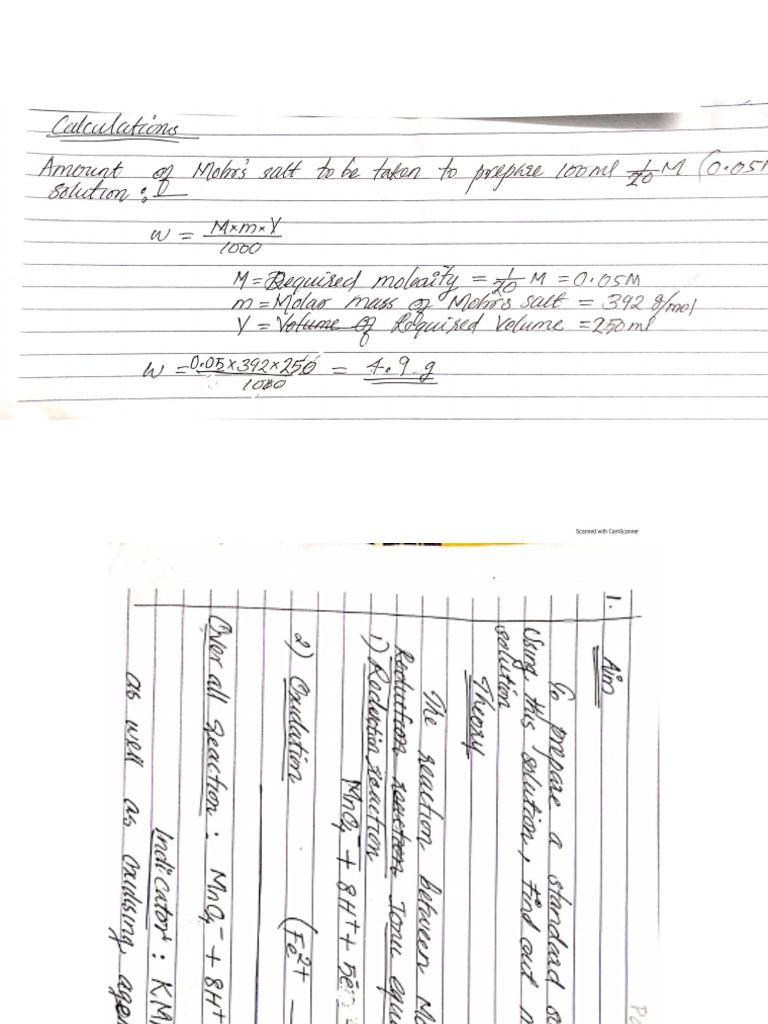 Calculations
Amount of Mohr's salt to be taken to prepare 100ml 1/20 M (0.05M
solution :
w = M×m×V/1000
M = Required molarity = 1/20 M = 0.05M
m = Molar mass of Mohr's salt = 392 g/mol
V = Volume of Required Volume = 250ml
w = 0.05×392×250/1000 = 4.9 g
Scanned with CamScanner
1.
Aim
To prepare a standard
Using this solution, find out
solution
Theory
The reaction between
Reduction reaction Ionic
1) Reduction reaction
MnO4⁻ + 8H⁺ + 5e
2) Oxidation
(Fe²⁺
Over all reaction : MnO4⁻ + 8H⁺
Indicator :
as well as oxidising